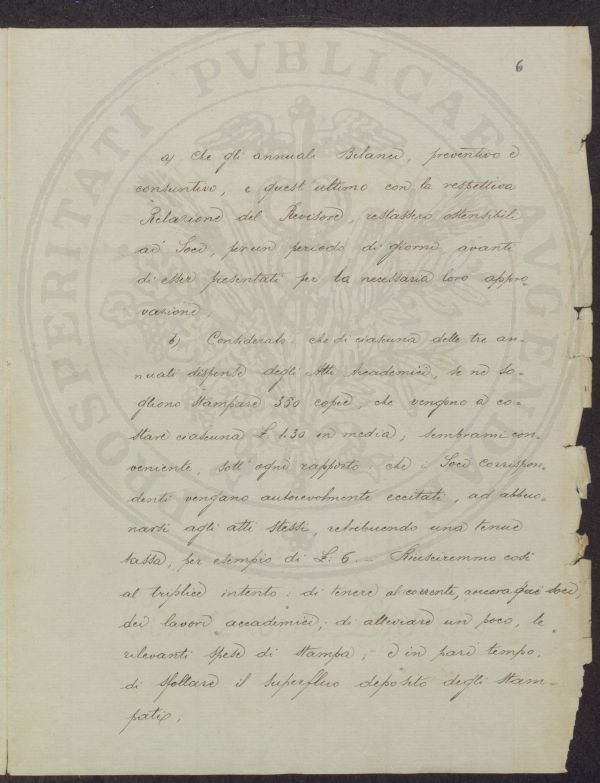 6
PROSPERITATI PVBLICAE AVGENDAE
a) Che gli annuali Bilanci, preventivo e
consuntivo, e quest'ultimo con la respettiva
Relazione del Revisore, restassero ostensibili
ai Soci, per un periodo di giorni avanti
di esser presentati per la necessaria loro appro-
vazione.
b) Considerato: che di ciascuna delle tre an-
nuali dispense degli Atti Accademici, se ne so-
gliono stampare 350 copie, che vengono a co-
stare ciascuna £ 1.30 in media; sembrami con-
veniente, sott' ogni rapporto che i Soci corrispon-
denti vengano autorevolmente eccitati, ad abbuo-
narsi agli atti stessi, retribuendo una tenue
tassa, per esempio di £: 6. — Riusciremmo così
al triplice intento: di tenere al corrente, ancora quei soci,
dei lavori accademici; di alleviare un poco, le
rilevanti spese di stampa; e in pari tempo,
di sfollare il superfluo deposito degli stam-
pati;